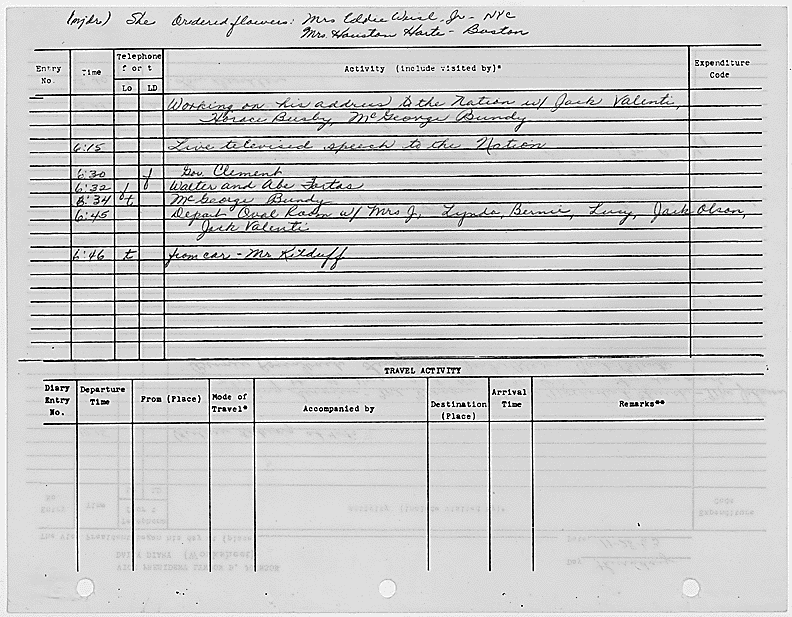 (mjdr) She Ordered flowers: Mrs Eddie Weisl, Jr - NYC
Mrs. Houston Harte - Boston
Entry No.
Time
Telephone f or t
Lo
LD
Activity (include visited by)*
Expenditure Code
Working on his address to the Nation w/ Jack Valenti,
Horace Busby, McGeorge Bundy
6:15 Live televised speech to the Nation
6:30 f Gov. Clement
6:32 f Walter and Abe Fortas
6:34 t McGeorge Bundy
6:45 Depart Oval Room w/ Mrs J, Lynda, Bernie, Lucy, Jack Olson,
Jack Valenti
6:46 t from car - Mr Kilduff
TRAVEL ACTIVITY
Diary Entry No.
Departure Time
From (Place)
Mode of Travel*
Accompanied by
Destination (Place)
Arrival Time
Remarks**